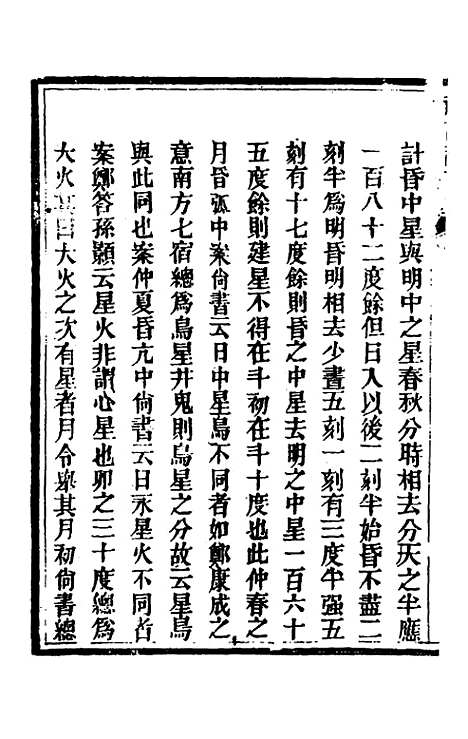 計昏中星與明中之星春秋分時相去分天之半應
一百八十二度餘但日入以後二刻半始昏不盡二
刻半爲明昏明相去少晝五刻一刻有三度半强五
刻有十七度餘則昏之中星去明之中星一百六十
五度餘則建星不得在斗初在斗十度也此仲春之
月昏弧中案尙書云日中星鳥不同者如鄭康成之
意南方七宿總爲鳥星井鬼則鳥星之分故云星鳥
與此同也案仲夏昏亢中尙書云日永星火不同者
案鄭答孫顥云星火非謂心星也卯之三十度總爲
大火其曰大火之次有星者月令舉其月初尙書總